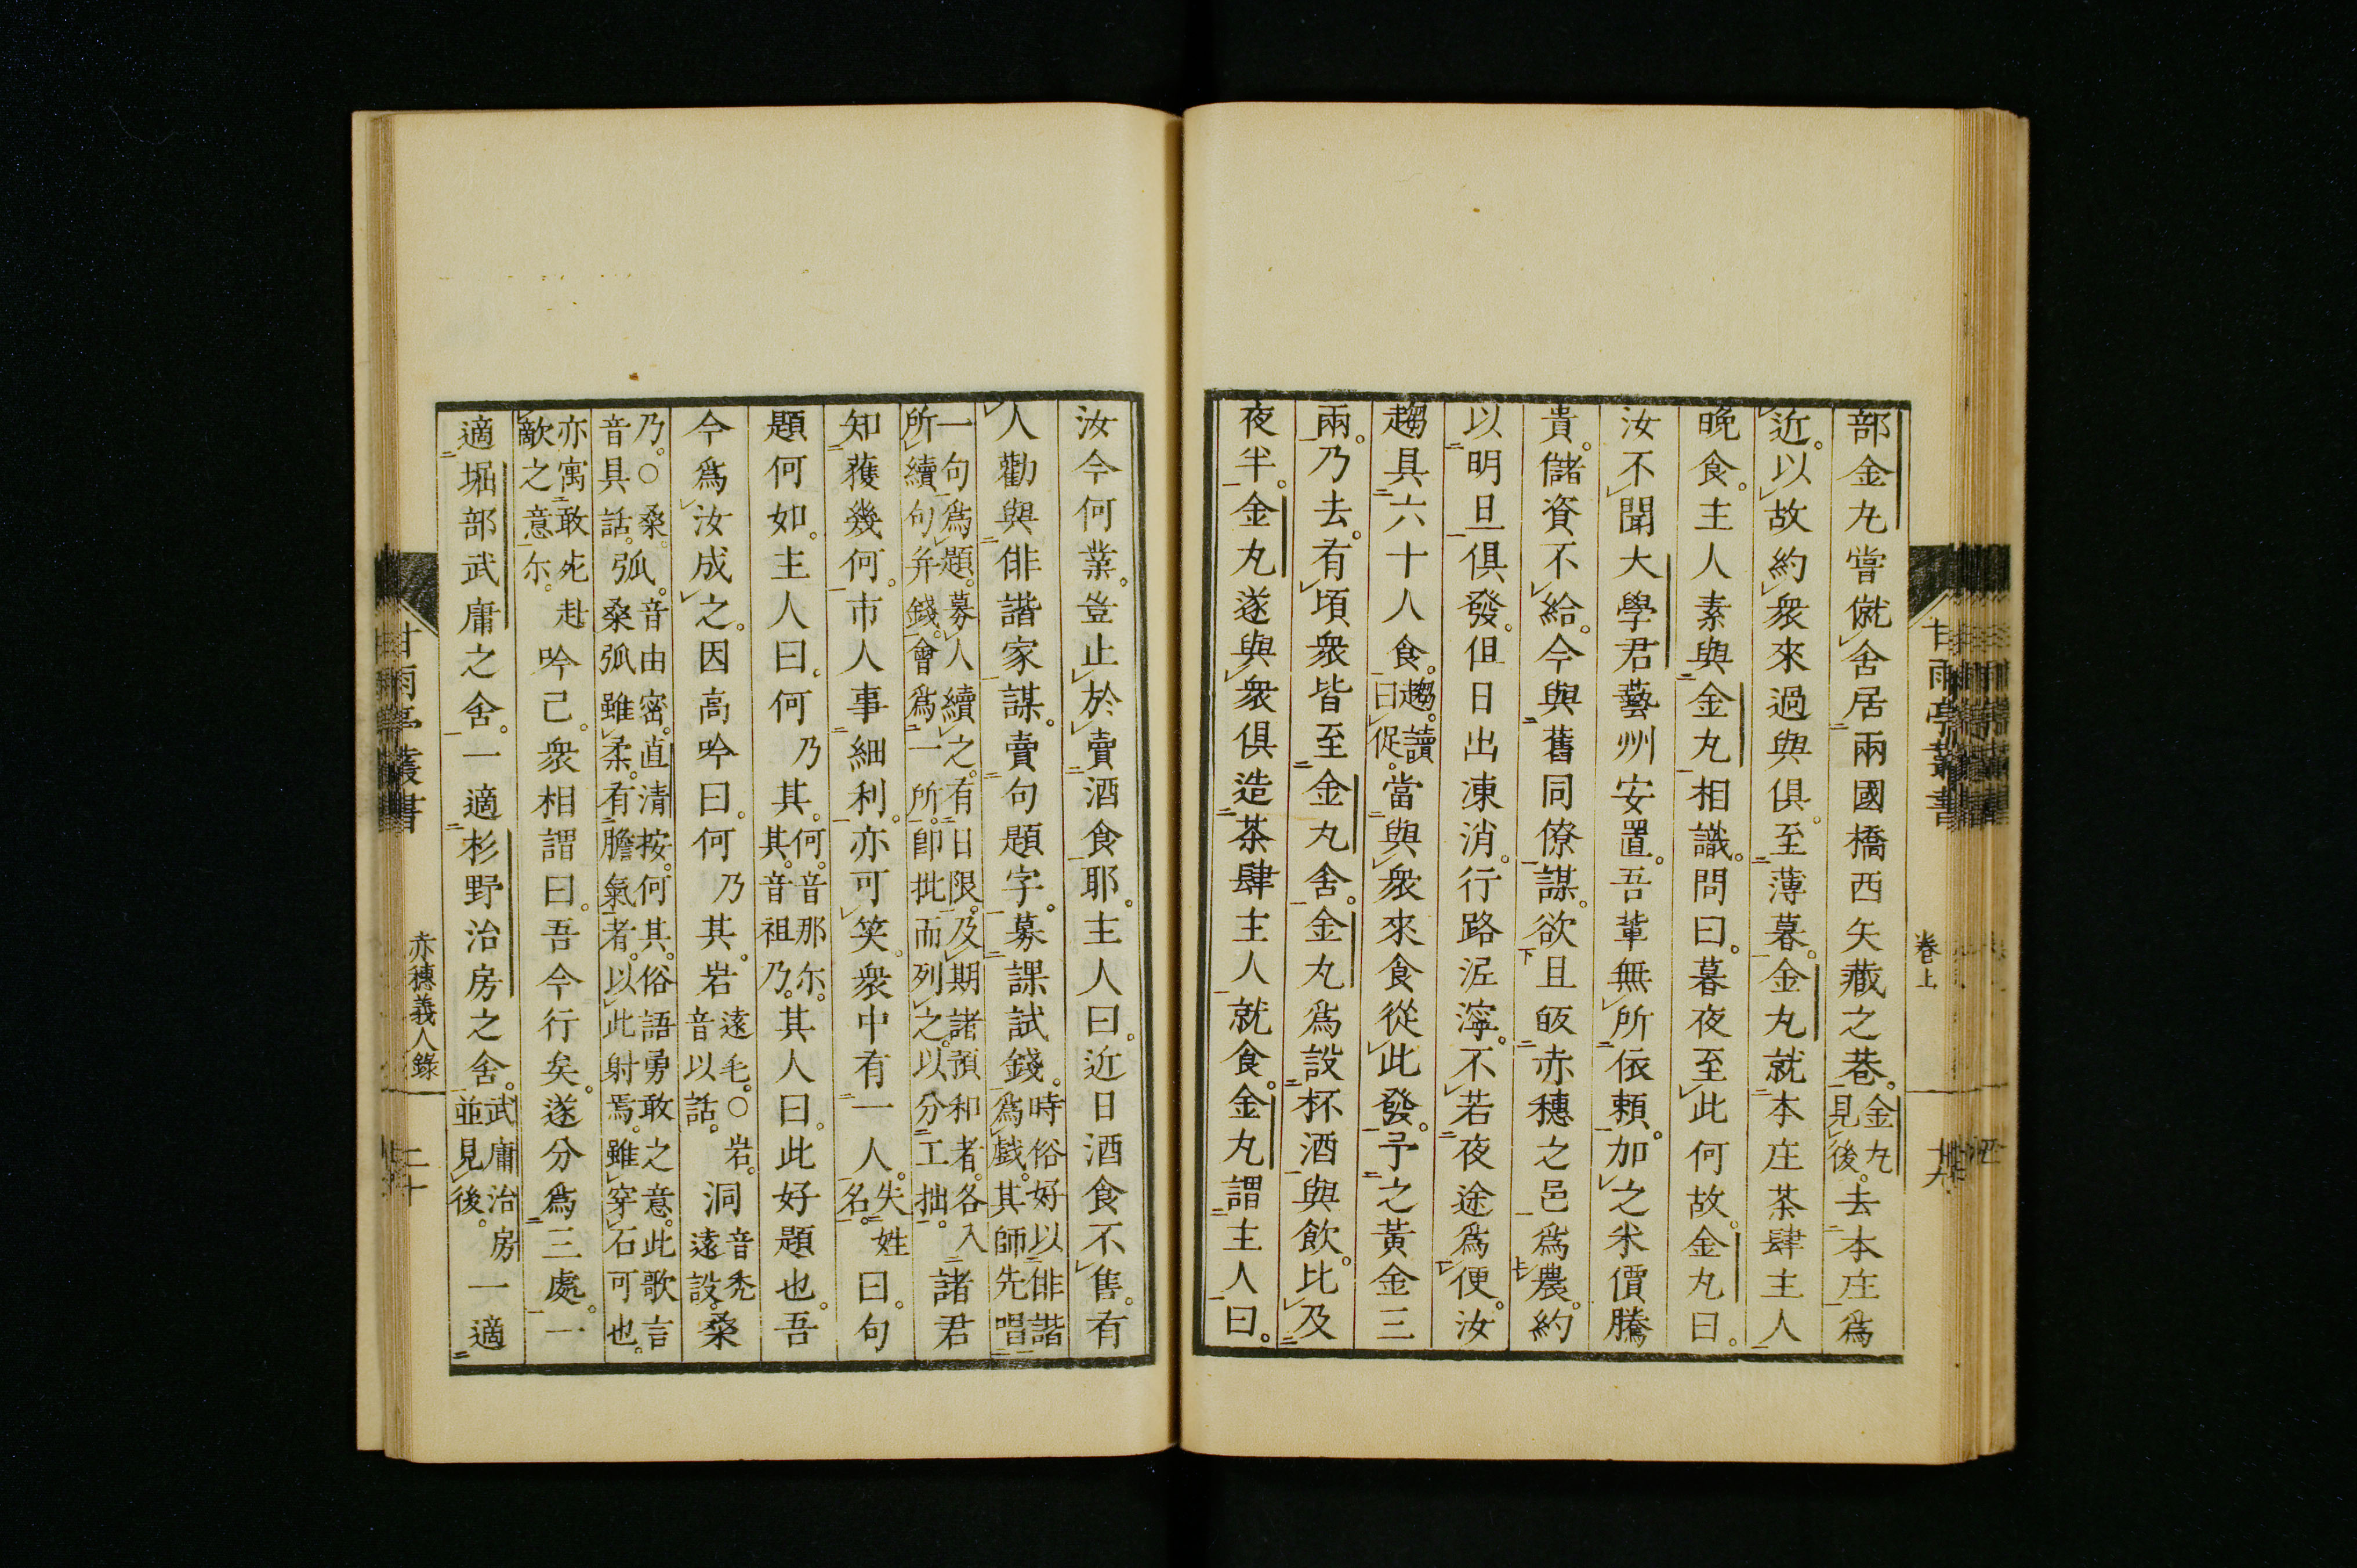 部金丸嘗僦舍居兩國橋西矢藏之巷。金丸見後。去本庄爲
近。以故約衆來過與俱。至薄暮。金丸就本庄茶肆主人
晚食。主人素與金丸相識。問曰。暮夜至此何故。金丸曰。
汝不聞大學君藝州安置。吾輩無所依賴。加之米價騰
貴。儲資不給。今與舊同僚謀。欲且皈赤穗之邑爲農。約
以明旦俱發。但日出凍消。行路泥濘。不若夜途爲便。汝
趨具六十人食。趨。讀曰促。當與衆來食從此發。予之黃金三
兩。乃去。有頃衆皆至金丸舍。金丸爲設杯酒與飲。比及
夜半。金丸遂與衆俱造茶肆主人就食。金丸謂主人曰。
甘雨亭叢書 卷上
汝今何業。豈止於賣酒食耶。主人曰。近日酒食不售。有
人勸與俳諧家謀。賣句題字。募課試錢。時俗好以俳諧爲戲。其師先唱
一句爲題。募人續之。有日限。及期諸預和者。各入所續句并錢。會爲一所。卽批而列之。以分工拙。諸君
知獲幾何。市人事細利。亦可笑。衆中有一人。失姓名。曰。句
題何如。主人曰。何乃其。何音那尔。其。音祖乃。其人曰。此好題也。吾
今爲汝成之。因高吟曰。何乃其。岩遠毛。○岩。音以話。洞音禿遠設。桑
乃。○桑。音具話。弧。音由密。直淸按。何其。俗語勇敢之意。此歌言桑弧雖柔。有膽氣者。以此射焉。雖穿石可也。
亦寓敢死赴敵之意尔。吟己。衆相謂曰。吾今行矣。遂分爲三處。一
適堀部武庸之舍。一適杉野治房之舍。武庸治房並見後。一適
甘雨亭叢書 赤穗義人錄 二十